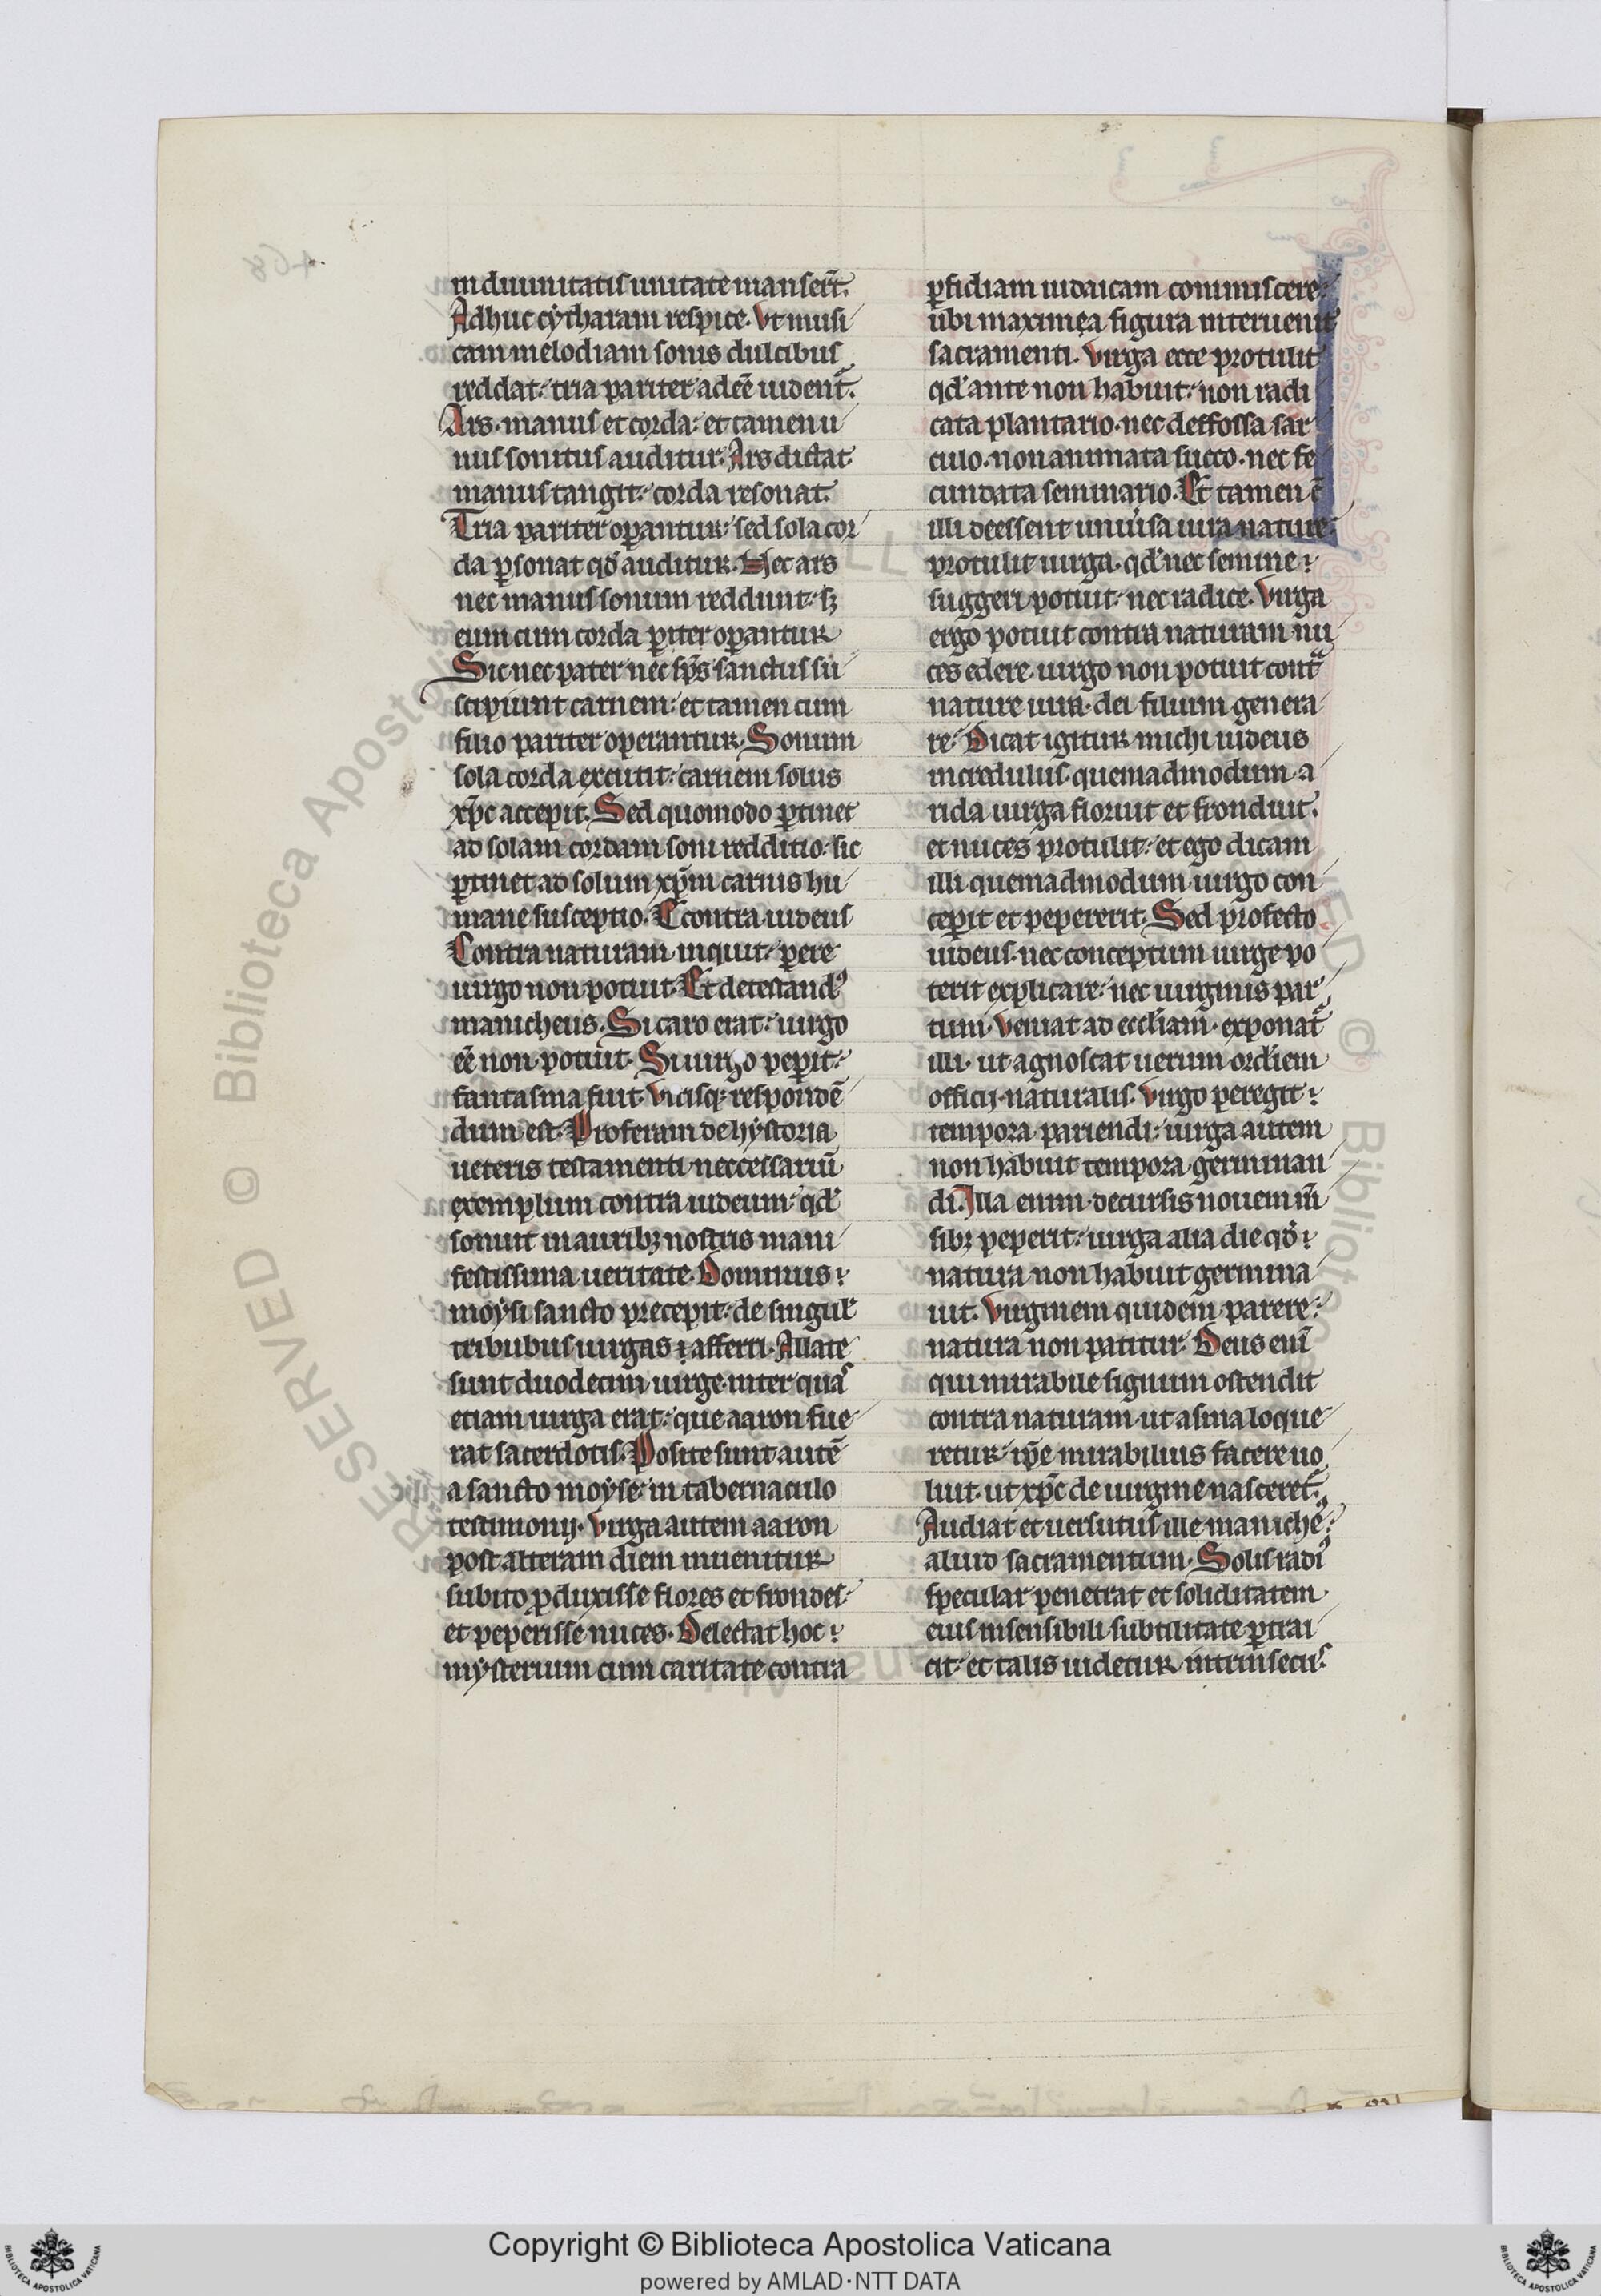 in diuinitatis unitate manser̄t.
Adhuc cytharam respice. Vt musi
cam melodiam sonis dulcibus
reddat: tria pariter adeē uident᷑.
Ars. manus et corda: et tamen u
nus sonitus auditur. Ars dictat.
manus tangit: corda resonat.
Tria pariter oꝑantur: sed sola cor
da ꝑsonat qd̓ auditur. Nec ars
nec manus sonum reddunt: sꝫ
eum cum corda ꝑiter oꝑantur
Sic nec pater nec sp̄s sanctus su
scipiunt carnem: et tamen cum
filio pariter operantur. Sonum
sola corda excutit: carnem solus
xp̄c accepit. Sed quomodo ꝑtinet
ad solam cordam soni redditio: sic
ꝑtinet ad solum xp̄m carnis hu
mane susceptio. Ccontra iudeus
Contra naturam inquit: ꝑere
uirgo non potuit. Et detestandꝰ
manicheus. Si caro erat: uirgo
eē non potuit. Si uirgo peꝑit:
fantasma fuit. Vtrisqꝫ respondē
dum est. Proferam de hystoria
ueteris testamenti neccessariū
exemplum contra iudeum: qd̓
sonuit in auribꝫ nostris mani
festissima ueritate. Dominus
moysi sancto precepit: de singul̓
tribubus uirgas ⁊ afferri. Allate
sunt duodecim uirge. inter quas
etiam uirga erat: que aaron fue
rat sacerdotis. Posite sunt autē
a sancto moyse: in tabernaculo
testimonij. Virga autem aaron
post alteram diem inuenitur
subito ꝓduxisse flores et frondes.
et peperisse nuces. Delectat hoc
mysterium cum caritate contra
ꝑfidiam iudaicam commiscere:
ubi maximęa figura interuenit
sacramenti. Virga ecce protulit
qd̓ ante non habuit: non radi
cata plantario. nec deffossa sar
culo. non animata succo. nec fe
cundata seminario. Et tamen c̄
illi deessent uniu̓sa iura nature:
protulit uirga. qd̓ nec semine
suggeri potuit: nec radice. Virga
ergo potuit contra naturam nu
ces edere. uirgo non potuit contᵃ
nature iura. dei filium genera
re: Dicat igitur michi iudeus
incredulus. quemadmodum a
rida uirga floruit et fronduit.
et nuces protulit: et ego dicam
illi quemadmodum uirgo con
cepit et pepererit. Sed profecto
iudeus. nec conceptum uirge po
terit explicare: nec uirginis par
tum. Veniat ad eccl̓iam. exponat᷑
illi. ut agnoscat uerum ordi̓em
officij naturalis. Virgo peregit
tempora pariendi: uirga autem
non habuit tempora germinan
di. Illa enim decursis nouem m̄
sibꝫ peperit: uirga alia die qd̓
natura non habuit germina
uit. Virginem quidem parere:
natura non patitur. Deus eni̅
qui mirabile signum ostendit
contra naturam. ut asina loque
retur: ip̄e mirabilius facere uo
luit. ut xp̄c de uirgine nasceret᷑.
Audiat et uersutus ille manicheꝰ:
aliud sacramentum. Solis radiꝰ
specular penetrat et soliditatem
eius insensibili subtilitate ꝑtrai
cit: et talis uidetur intrinsecus.
Copyright © Biblioteca Apostolica Vaticana
powered by AMLAD·NTT DATA